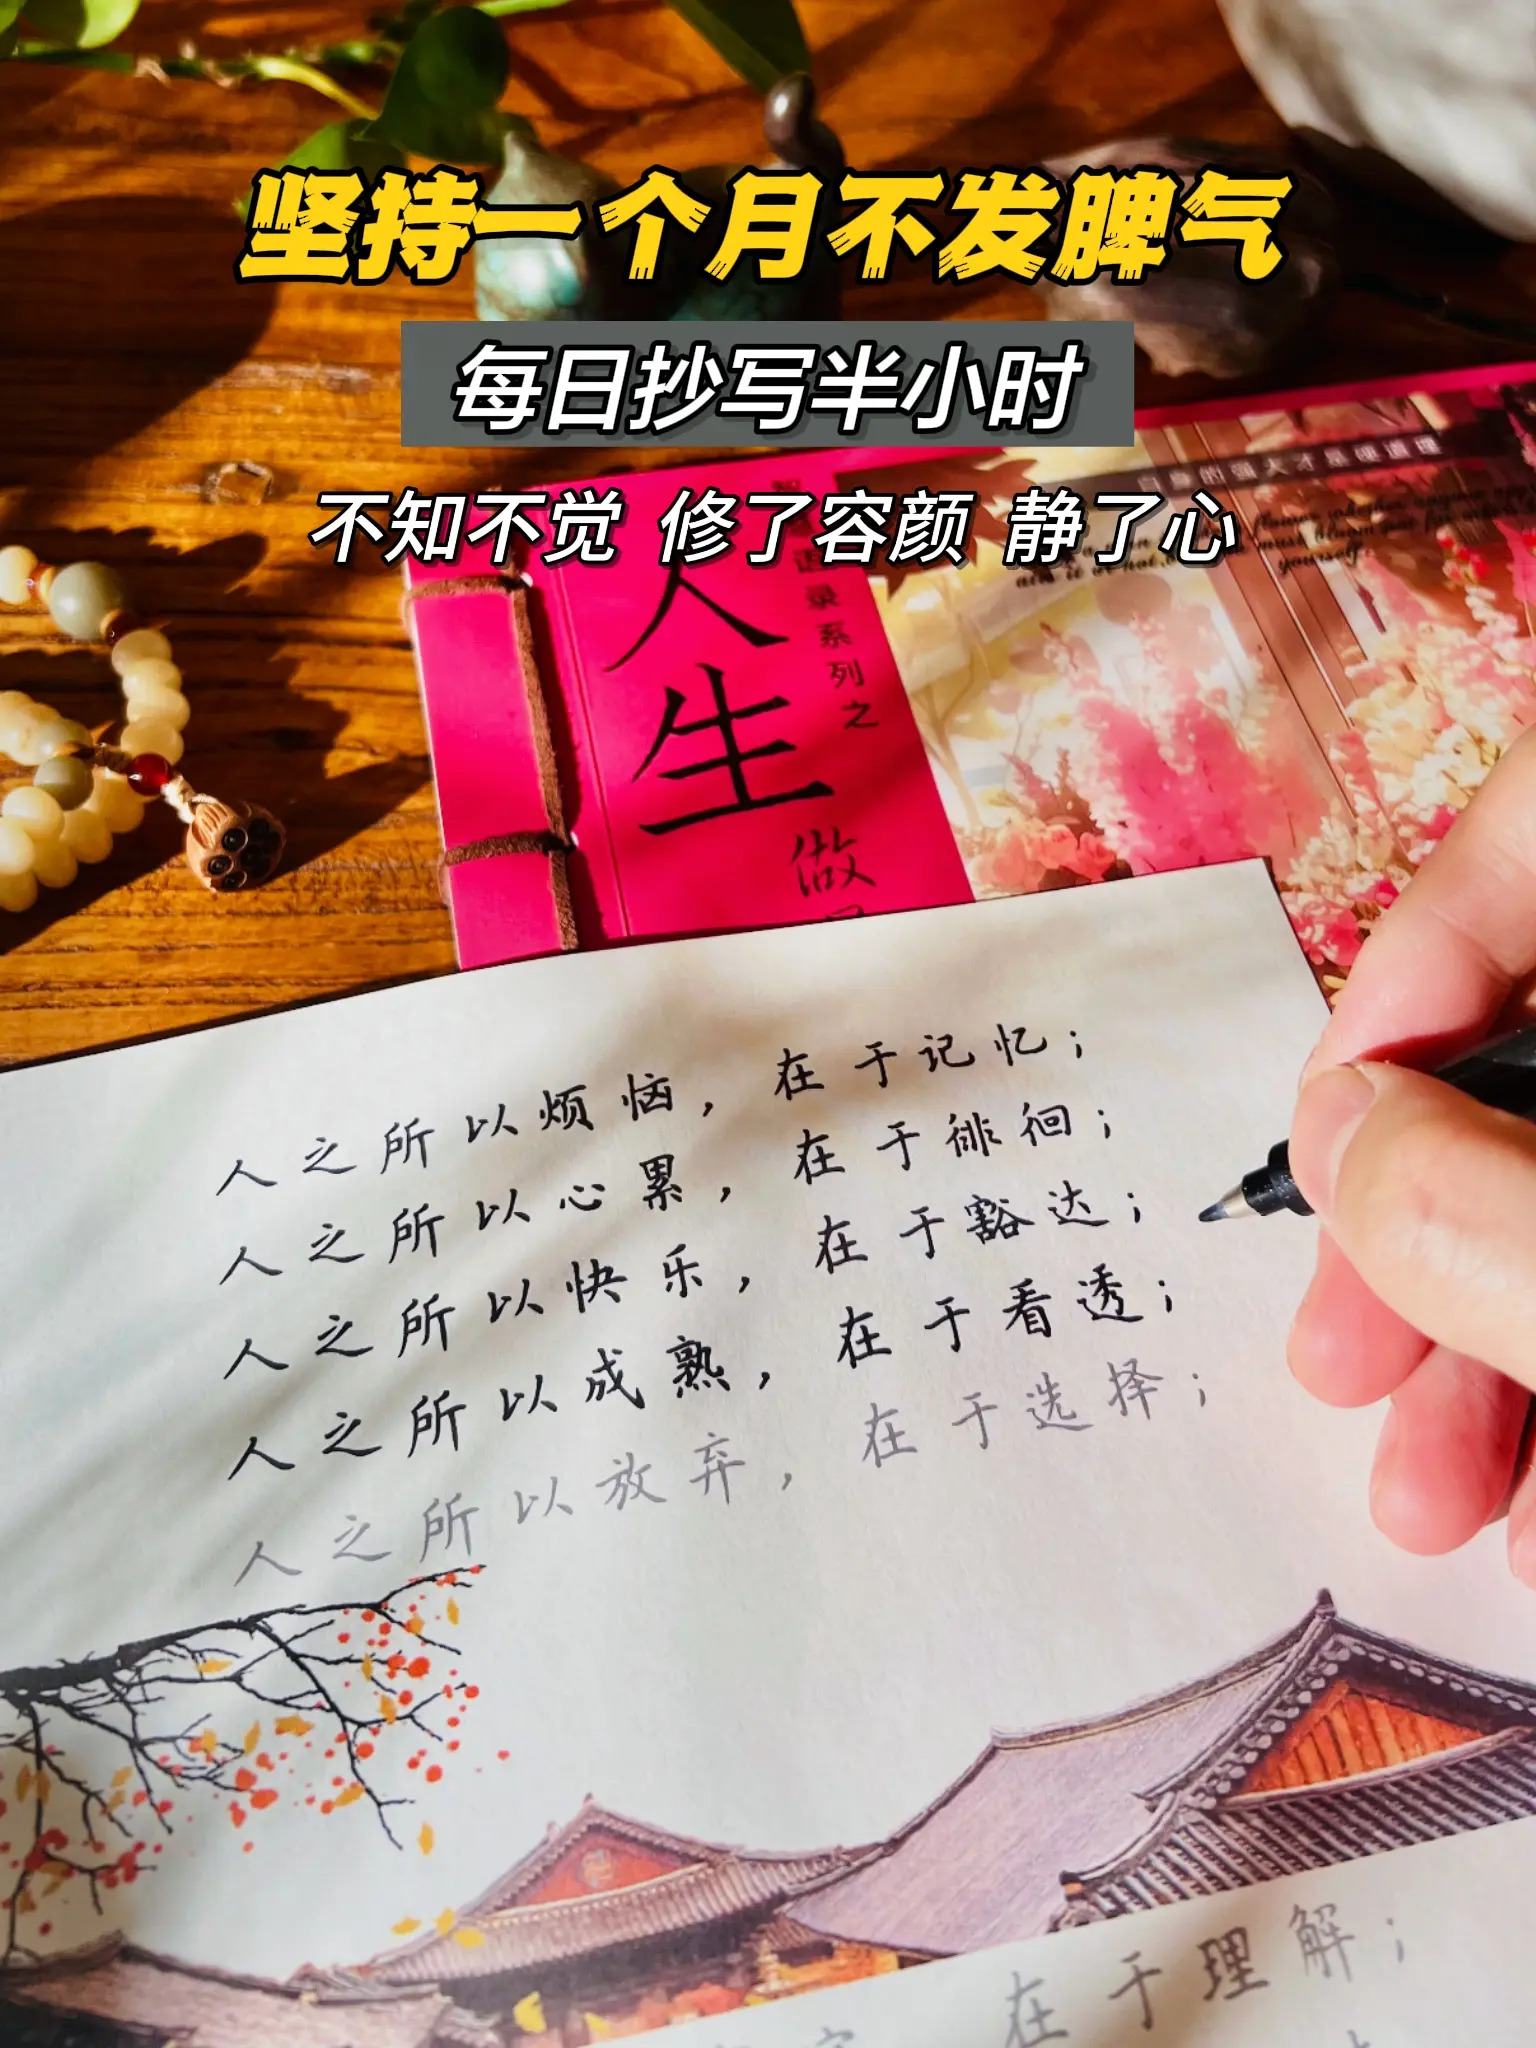 坚持一个月不发脾气
每日抄写半小时
不知不觉 修了容颜 静了心
自身的强大才是硬道理
yourself.
语录系列之
人生
做
人之所以烦恼，在于记忆；
人之所以心累，在于徘徊；
人之所以快乐，在于豁达；
人之所以成熟，在于看透；
人之所以放弃，在于选择；
在于理解；